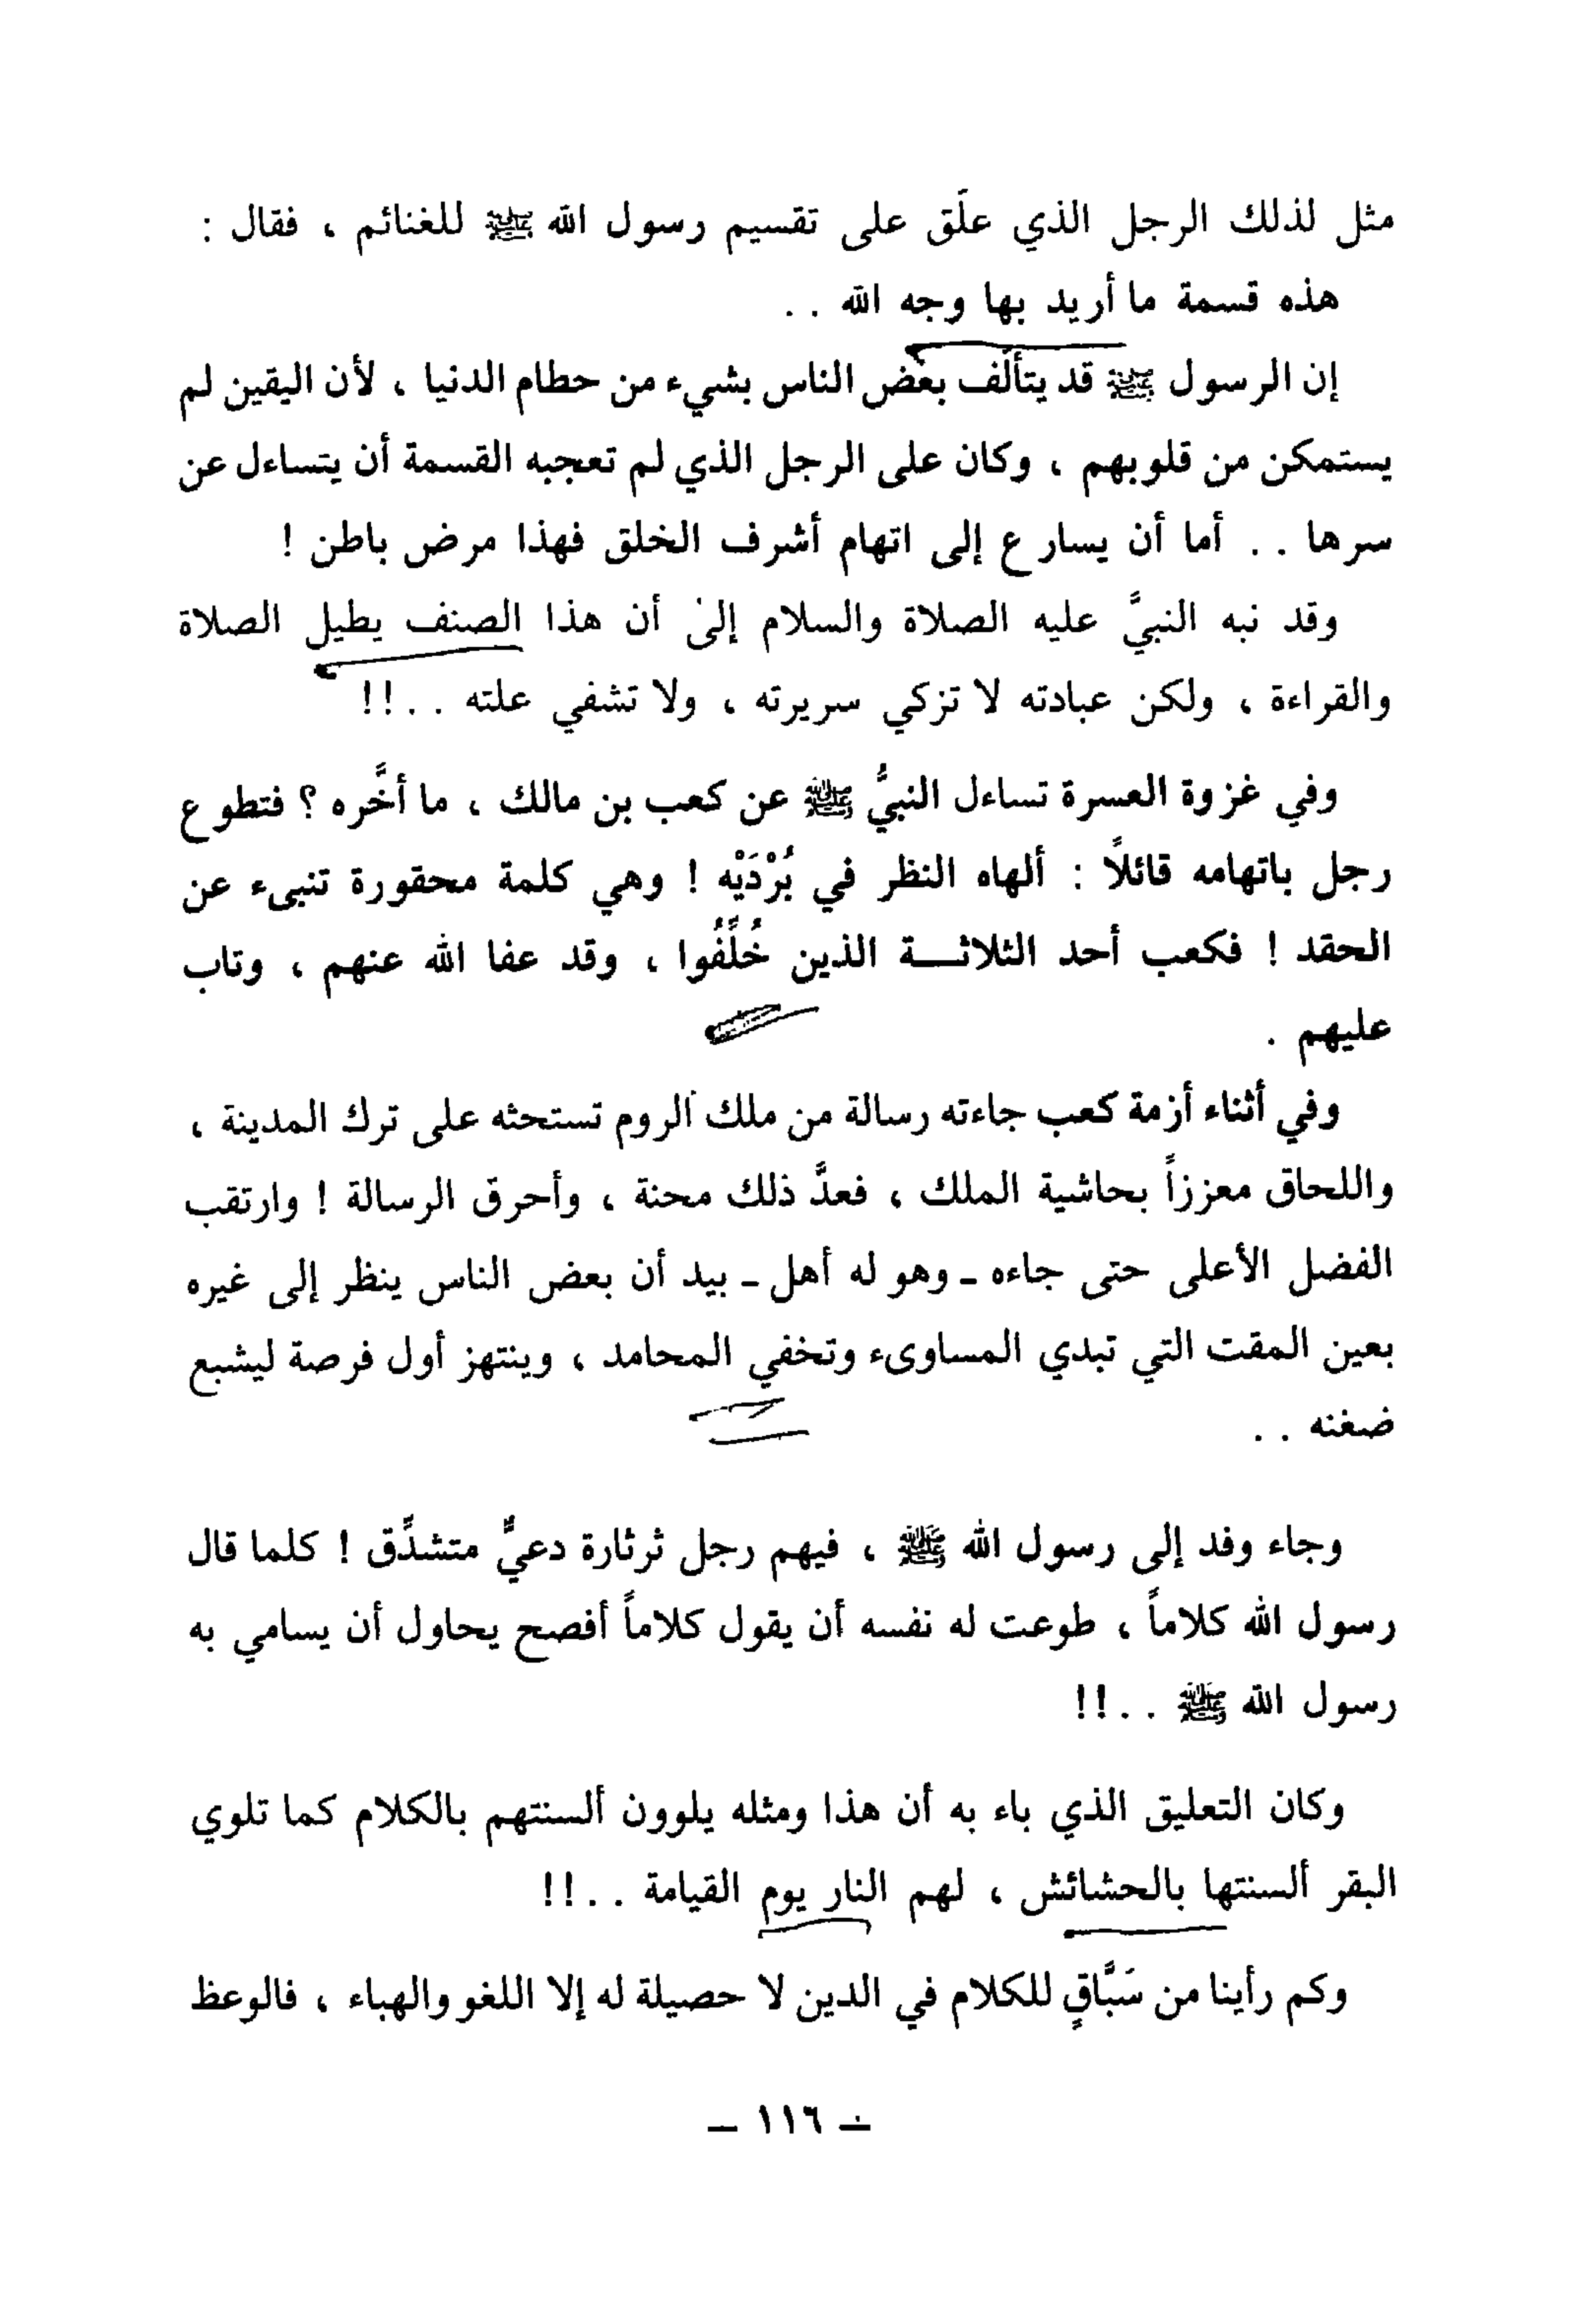 مثل لذلك الرجل الذي علَق على تقسيم رسول الله ﷺ للغنائم ، فقال :
هذه قسمة ما أريد بها وجه الله . .
إن الرسول ﷺ قد يتألَف بعض الناس بشيء من حطام الدنيا ، لأن اليقين لم
يستمكن من قلوبهم ، وكان على الرجل الذي لم تعجبه القسمة أن يتساءل عن
سرها . . أما أن يسارع إلى اتهام أشرف الخلق فهذا مرض باطن !
وقد نبه النبيَّ عليه الصلاة والسلام إلى أن هذا الصنف يطيل الصلاة
والقراءة ، ولكن عبادته لا تزكي سريرته ، ولا تشفي علته . . !!
وفي غزوة العسرة تساءل النبيُّ ﷺ عن كعب بن مالك ، ما أخَّره ؟ فتطوع
رجل باتهامه قائلاً : ألهاه النظر في بُرْدَيْه ! وهي كلمة محقورة تنبىء عن
الحقد ! فكعب أحد الثلاثـــة الذين خُلِّفُوا ، وقد عفا الله عنهم ، وتاب
عليهم .
وفي أثناء أزمة كعب جاءته رسالة من ملك الروم تستحثه على ترك المدينة ،
واللحاق معززاً بحاشية الملك ، فعدَّ ذلك محنة ، وأحرق الرسالة ! وارتقب
الفضل الأعلى حتى جاءه - وهو له أهل - بيد أن بعض الناس ينظر إلى غيره
بعين المقت التي تبدي المساوىء وتخفي المحامد ، وينتهز أول فرصة ليشبع
ضغنه . .
وجاء وفد إلى رسول الله ﷺ ، فيهم رجل ثرثارة دعيٌّ متشدِّق ! كلما قال
رسول الله كلاماً ، طوعت له نفسه أن يقول كلاماً أفصح يحاول أن يسامي به
رسول الله ﷺ . . !!
وكان التعليق الذي باء به أن هذا ومثله يلوون ألسنتهم بالكلام كما تلوي
البقر ألسنتها بالحشائش ، لهم النار يوم القيامة . . !!
وكم رأينا من سَبَّاقٍ للكلام في الدين لا حصيلة له إلا اللغو والهباء ، فالوعظ
— ١١٦ —